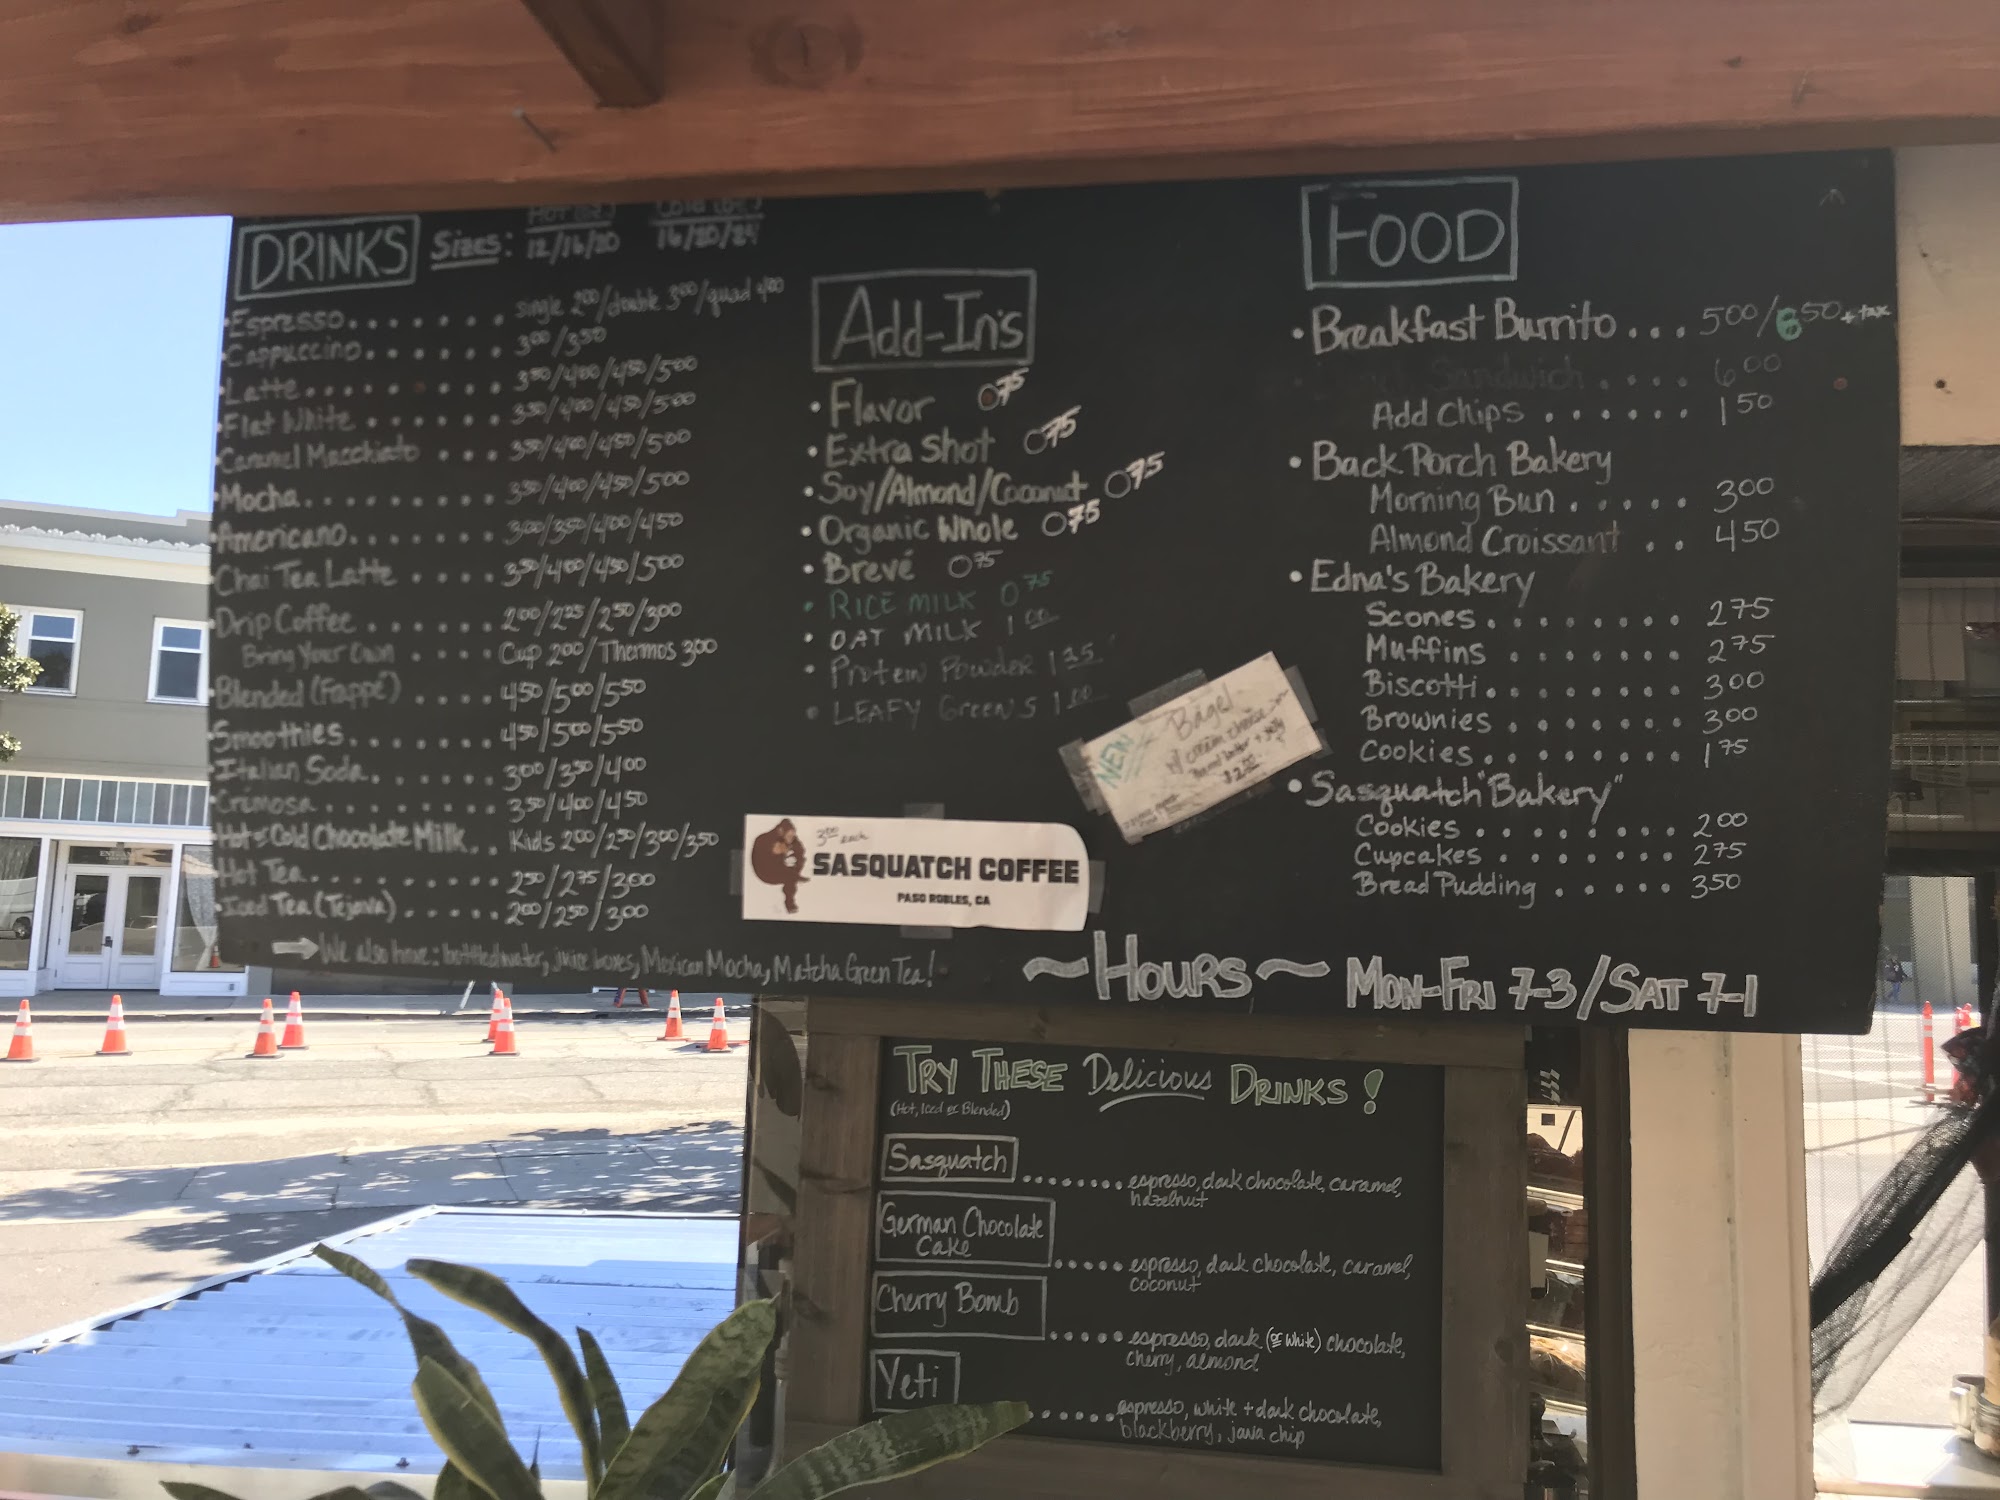 DRINKS Sizes: HOT (oz.) 12/16/20 COLD (oz.) 16/20/24
• Espresso....... single 2⁰⁰/double 3⁰⁰/quad 4⁰⁰
• Cappuccino...... 3⁰⁰/3⁵⁰
• Latte........ 3⁵⁰/4⁰⁰/4⁵⁰/5⁰⁰
• Flat White ..... 3⁵⁰/4⁰⁰/4⁵⁰/5⁰⁰
• Caramel Macchiato ... 3⁵⁰/4⁰⁰/4⁵⁰/5⁰⁰
• Mocha......... 3⁵⁰/4⁰⁰/4⁵⁰/5⁰⁰
• Americano....... 3⁰⁰/3⁵⁰/4⁰⁰/4⁵⁰
• Chai Tea Latte .... 3⁵⁰/4⁰⁰/4⁵⁰/5⁰⁰
• Drip Coffee....... 2⁰⁰/2²⁵/2⁵⁰/3⁰⁰
Bring Your Own .... Cup 2⁰⁰/Thermos 3⁰⁰
• Blended (Frappé) .... 4⁵⁰/5⁰⁰/5⁵⁰
• Smoothies....... 4⁵⁰/5⁰⁰/5⁵⁰
• Italian Soda...... 3⁰⁰/3⁵⁰/4⁰⁰
• Cremosa........ 3⁵⁰/4⁰⁰/4⁵⁰
• Hot or Cold Chocolate Milk.. Kids 2⁰⁰/2⁵⁰/3⁰⁰/3⁵⁰
• Hot Tea.......... 2⁵⁰/2⁷⁵/3⁰⁰
• Iced Tea (Tejava)..... 2⁰⁰/2⁵⁰/3⁰⁰
→ We also have: bottled water, juice boxes, Mexican Mocha, Matcha Green Tea!
Add-In's
• Flavor 0⁷⁵
• Extra Shot 0⁷⁵
• Soy/Almond/Coconut 0⁷⁵
• Organic Whole 0⁷⁵
• Brevé 0⁷⁵
• RICE MILK 0⁷⁵
• OAT MILK 1⁰⁰
• Protein Powder 1³⁵
• LEAFY GreenS 1⁰⁰
NEW
Bagel
w/ cream cheese
$2.00
3⁰⁰ each
SASQUATCH COFFEE
PASO ROBLES, CA
FOOD
• Breakfast Burrito... 5⁰⁰/6⁵⁰ + tax
Sandwich .... 6⁰⁰
Add Chips ...... 1⁵⁰
• Back Porch Bakery
Morning Bun ..... 3⁰⁰
Almond Croissant .. 4⁵⁰
• Edna's Bakery
Scones........ 2⁷⁵
Muffins ....... 2⁷⁵
Biscotti........ 3⁰⁰
Brownies ....... 3⁰⁰
Cookies........ 1⁷⁵
• Sasquatch "Bakery"
Cookies ........ 2⁰⁰
Cupcakes ....... 2⁷⁵
Bread Pudding ..... 3⁵⁰
~HOURS~ MON-FRI 7-3/SAT 7-1
TRY THESE Delicious DRINKS!
(Hot, Iced or Blended)
Sasquatch ........ espresso, dark chocolate, caramel,
hazelnut
German Chocolate
Cake ..... espresso, dark chocolate, caramel,
coconut
Cherry Bomb ..... espresso, dark (or white) chocolate,
cherry, almond
Yeti ..... espresso, white + dark chocolate,
blackberry, java chip